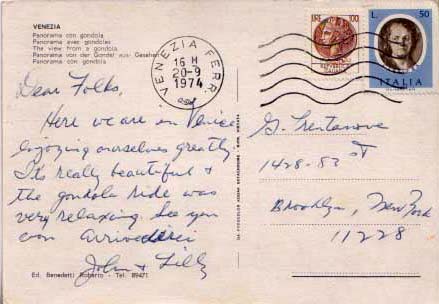 VENEZIA
Panorama con gondola
Panorama avec gondoles
The view from a gondola
Panorama von der Gondel aus Gesehen
Panorama con gondola
VENEZIA FERR.
16 H
20-9
1974
LIRE 100
L. 50
ITALIA
Dear Folks,
Here we are in Venice
enjoying ourselves greatly
It's really beautiful &
the gondola ride was
very relaxing. See you
soon Arrivederci
John & Lilly
G. Trentanove
1428-83 ST
Brooklyn, New York
11228
Ed. Benedetti Roberto - Tel. 89471